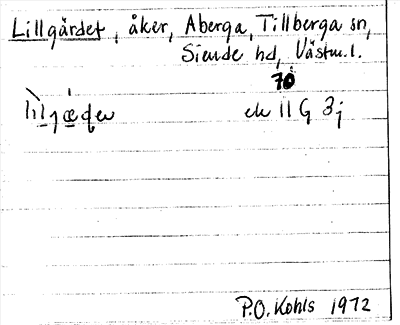 Lillgärdet, åker, Aberga, Tillberga sn,
Siende hd, Västm.l.
70
ek 11 G 3j
P.O. Kohls 1972